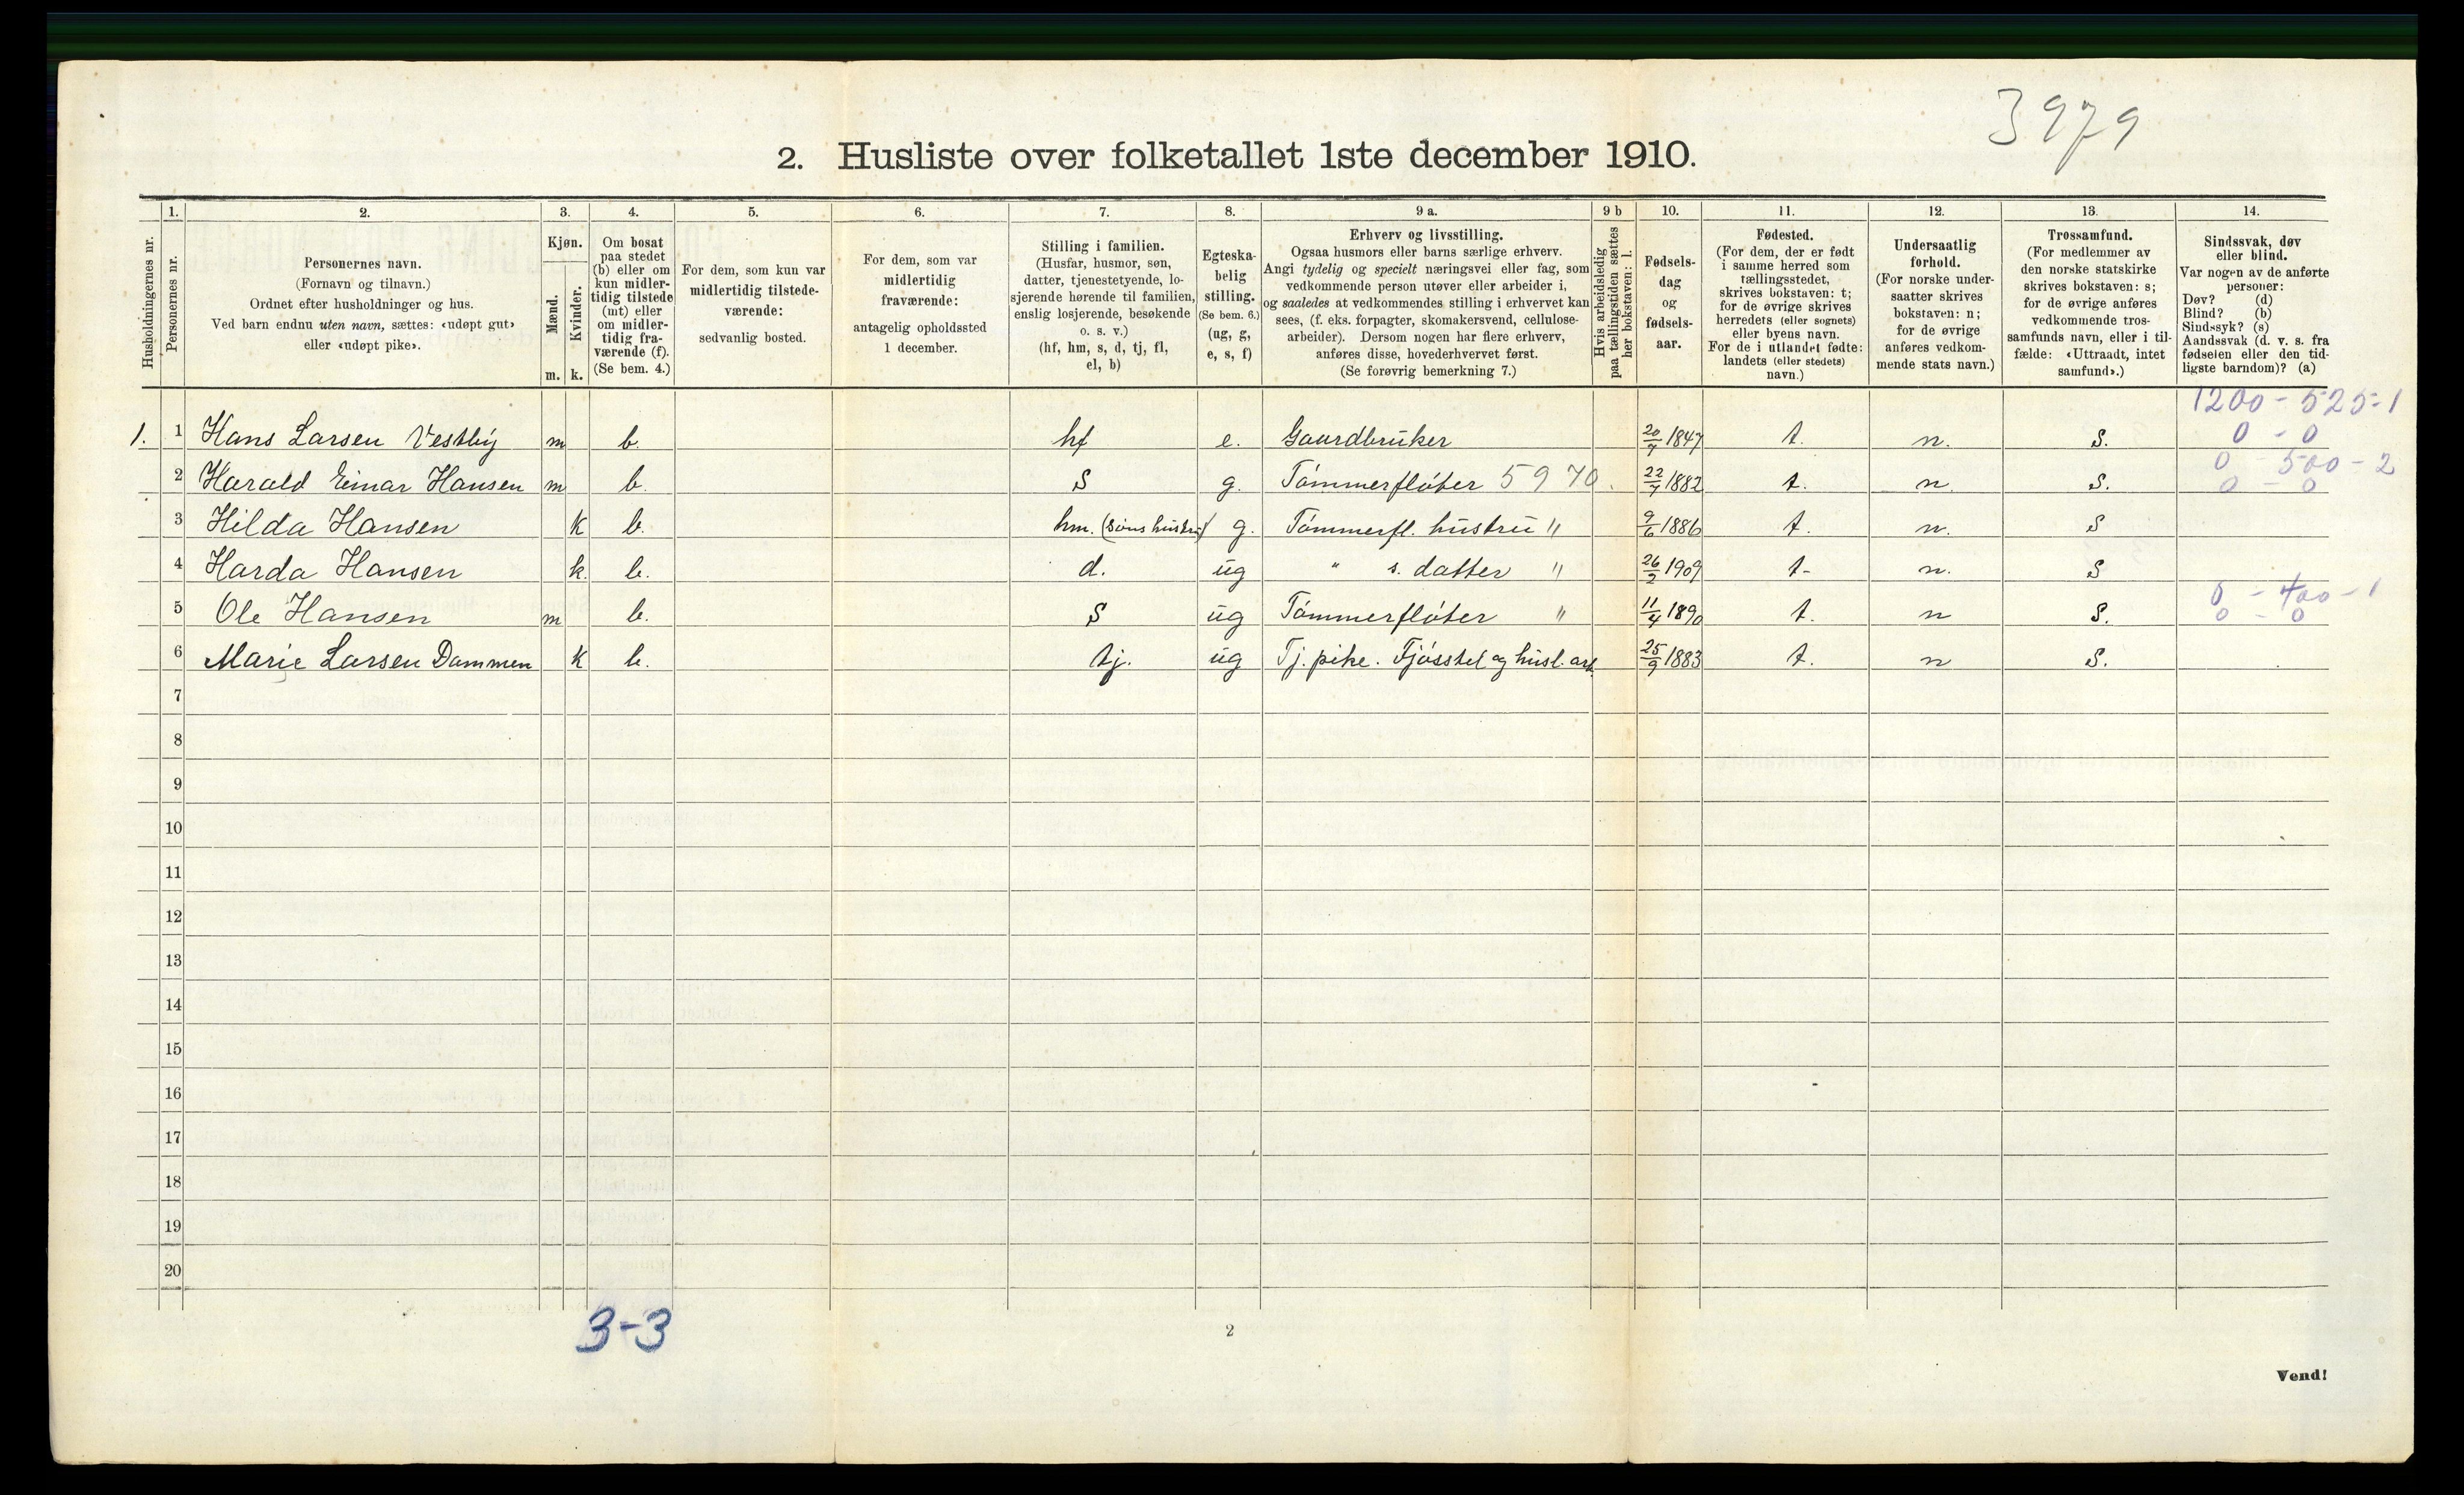 3979
2. Husliste over folketallet 1ste december 1910.
Husholdningernes nr.
1.
Personernes nr.
2.
Personernes navn.
(Fornavn og tilnavn.)
Ordnet efter husholdninger og hus.
Ved barn endnu uten navn, sættes: «udøpt gut»
eller «udøpt pike».
3.
Kjøn.
Mænd.
Kvinder.
m. k.
4.
Om bosat
paa stedet
(b) eller om
kun midler-
tidig tilstede
(mt) eller
om midler-
tidig fra-
værende (f).
(Se bem. 4.)
5.
For dem, som kun var
midlertidig tilstede-
værende:
sedvanlig bosted.
6.
For dem, som var
midlertidig
fraværende:
antagelig opholdssted
1 december.
7.
Stilling i familien.
(Husfar, husmor, søn,
datter, tjenestetyende, lo-
sjerende hørende til familien,
enslig losjerende, besøkende
o. s. v.)
(hf, hm, s, d, tj, fl,
el, b)
8.
Egteska-
belig
stilling.
(Se bem. 6.)
(ug, g,
e, s, f)
9 a.
Erhverv og livsstilling.
Ogsaa husmors eller barns særlige erhverv.
Angi tydelig og specielt næringsvei eller fag, som
vedkommende person utøver eller arbeider i,
og saaledes at vedkommendes stilling i erhvervet kan
sees, (f. eks. forpagter, skomakersvend, cellulose-
arbeider). Dersom nogen har flere erhverv,
anføres disse, hovederhvervet først.
(Se forøvrig bemerkning 7.)
9 b
Hvis arbeidsledig
paa tællingstiden sættes
her bokstaven: l.
10.
Fødsels-
dag
og
fødsels-
aar.
11.
Fødested.
(For dem, der er født
i samme herred som
tællingsstedet,
skrives bokstaven: t;
for de øvrige skrives
herredets (eller sognets)
eller byens navn.
For de i utlandet fødte:
landets (eller stedets)
navn.)
12.
Undersaatlig
forhold.
(For norske under-
saatter skrives
bokstaven: n;
for de øvrige
anføres vedkom-
mende stats navn.)
13.
Trossamfund.
(For medlemmer av
den norske statskirke
skrives bokstaven: s;
for de øvrige anføres
vedkommende tros-
samfunds navn, eller i til-
fælde: «Uttraadt, intet
samfund».)
14.
Sindssvak, døv
eller blind.
Var nogen av de anførte
personer:
Døv? (d)
Blind? (b)
Sindssyk? (s)
Aandssvak (d. v. s. fra
fødselen eller den tid-
ligste barndom)? (a)
1200 - 525-1
1. 1 Hans Larsen Vestby m b. hf e. Gaardbruker 20/7 1847 t. n. S. 0 - 0
0 - 500 - 2
2 Harald Einar Hansen m b. S g. Tømmerfløter 5970. 22/7 1882 t. n. S. 0 - 0
3 Hilda Hansen k b. hm. (Søns hustru) g. Tømmerfl. hustru " 9/6 1886 t. n. S
4 Harda Hansen k. b. d. ug " s. datter " 26/2 1909 t- n. S
0 - 400 - 1
5 Ole Hansen m b. S ug Tømmerfløter " 11/4 1890 t. n S. 0 - 0
6 Marie Larsen Dammen k b. tj. ug Tj. pike. Fjøsstel og husl. arb. 25/9 1883 t. n S.
7
8
9
10
11
12
13
14
15
16
17
18
19
20
3-3
2
Vend!